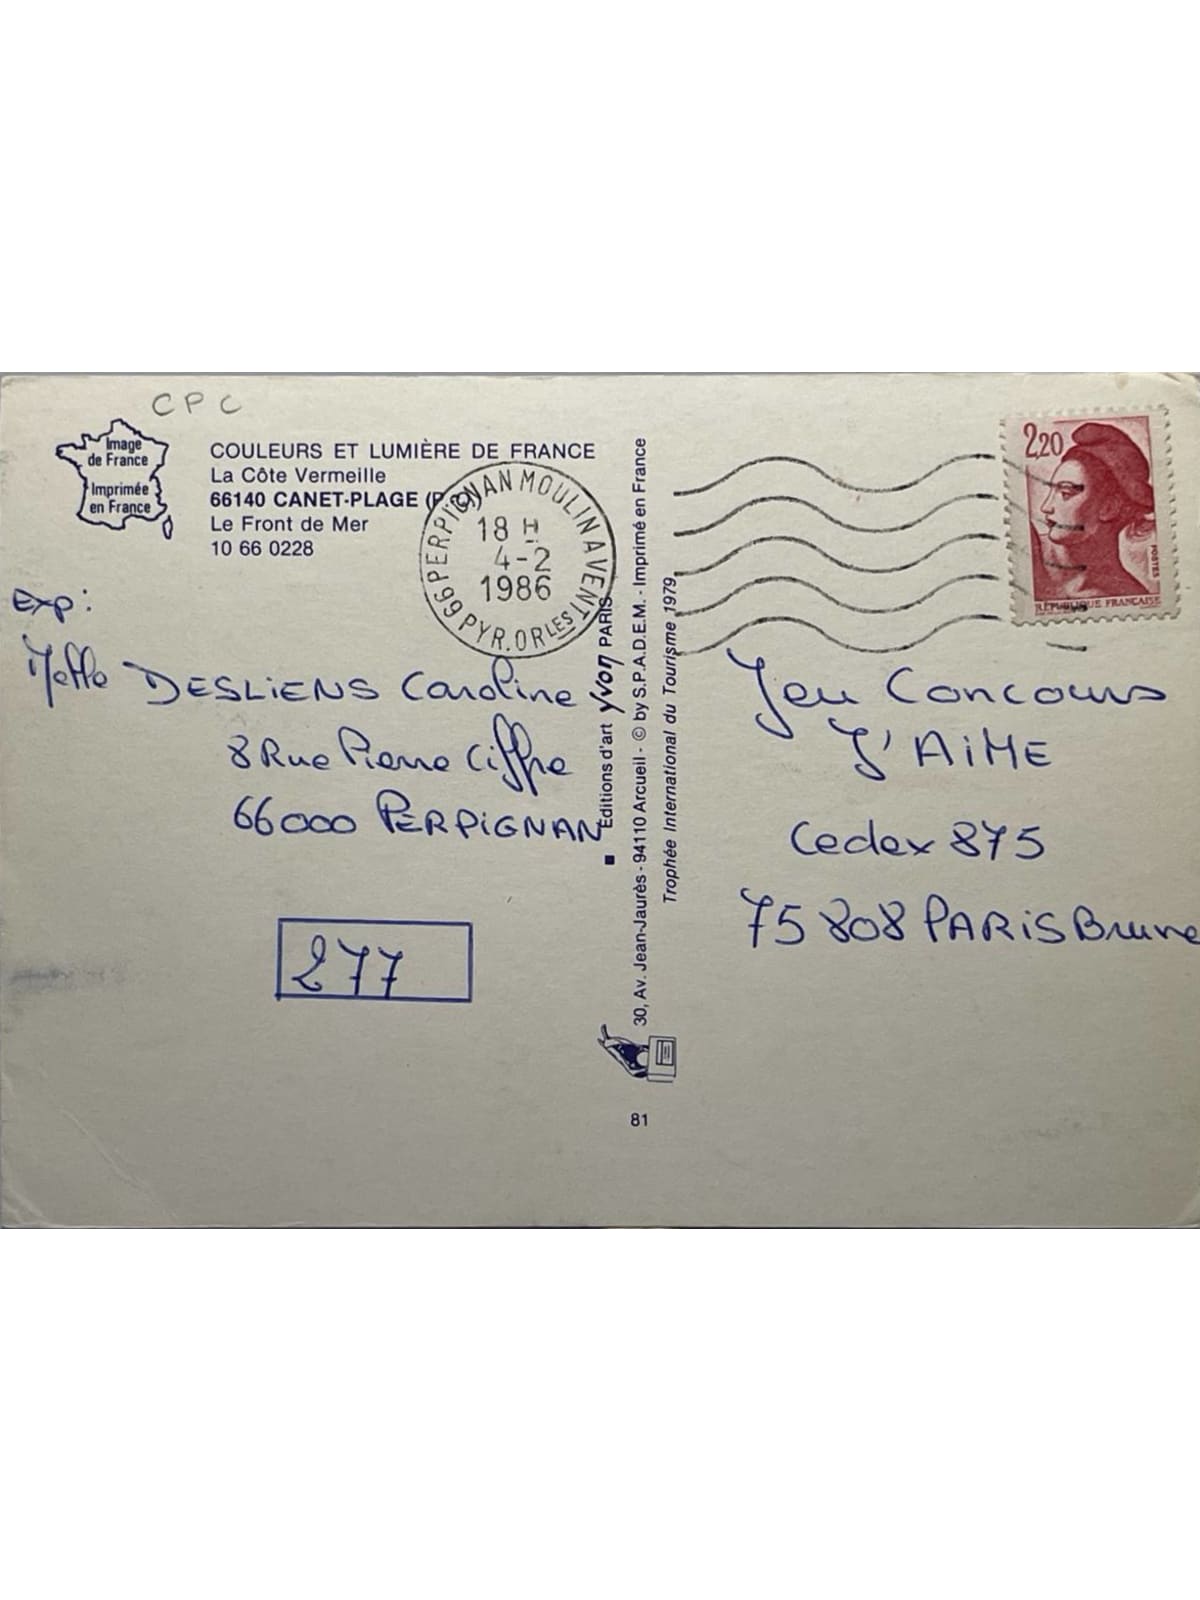 CPC
Image
de France
Imprimée
en France
COULEURS ET LUMIÈRE DE FRANCE
La Côte Vermeille
66140 CANET-PLAGE (P
Le Front de Mer
10 66 0228
66 PERPIGNAN MOULIN A VENT
18 H
4-2
1986
PYR. ORLES
2,20
POSTES
RÉPUBLIQUE FRANÇAISE
Exp:
Melle DESLIENS Caroline
8 Rue Pierre Ciffre
66000 PERPIGNAN
277
Editions d'art yvon PARIS
30, Av. Jean-Jaurès - 94110 Arcueil - © by S.P.A.D.E.M. - Imprimé en France
Trophée International du Tourisme 1979
81
Jeu Concours
J'AIME
Cedex 875
75 808 PARIS Brune